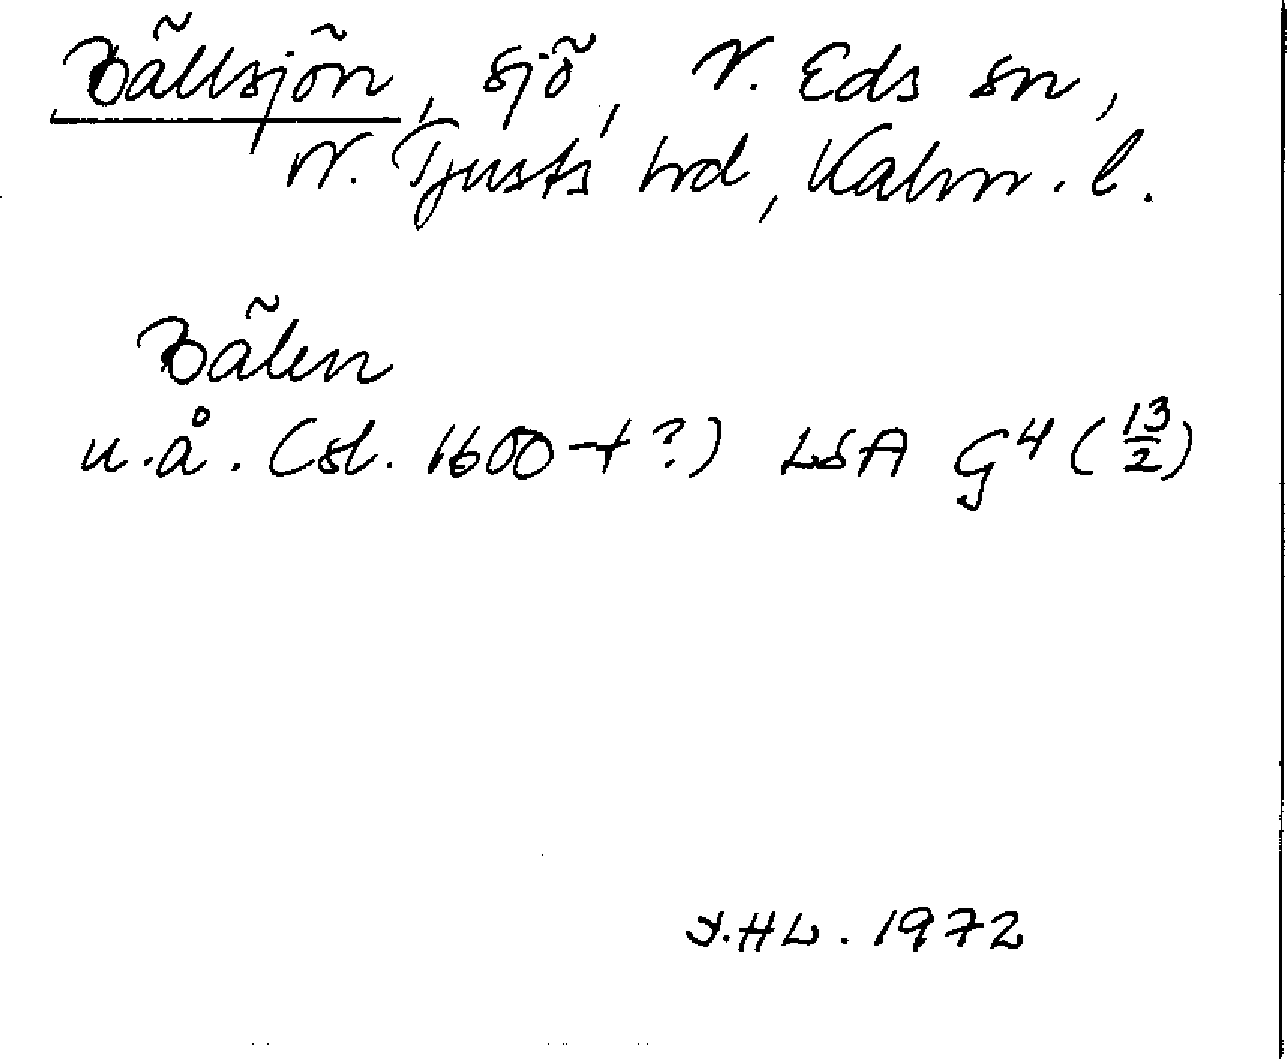 Bällsjön, sjö, N. Eds sn,
N. Tjusts hd, Kalm. l.
Bälen
u.å. (sl. 1600-t?) LSA G4 (13/2)
Y.HL. 1972